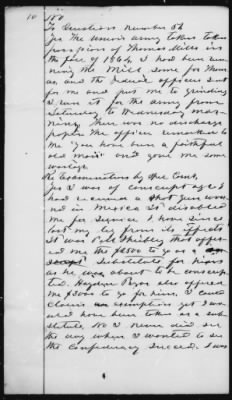 10 150
To Question Number 54
Yes The Union army taken taken
possession of Thomas Mills in
the fire of 1864, I had been run
ning the Mill some for them
as, and the Federal officers sent
for me and put me to grinding
I run it for the army from
Saturday to Wednesday mor
ning, There was no discharge
paper The officer remarked to
me "you have been a faithful
old man" and gave me some

Re Examination by the Court,
Yes I was of conscript age I
had received a shot gun wou
nd in Mexico It disabled
me for service I have since
lost my leg from its effects
It was Pete Shibley that offer
ed me the $2500 to go as a
Substitute for him
as he was about to be conscrip
ted. Hayden Pryor also offered
me $2000 to go for him, I could
claim exemption yet I wo
uld have been taken as a sub
stitute, No I never did see
the day when I wanted to see
the Confederacy succeed. I was